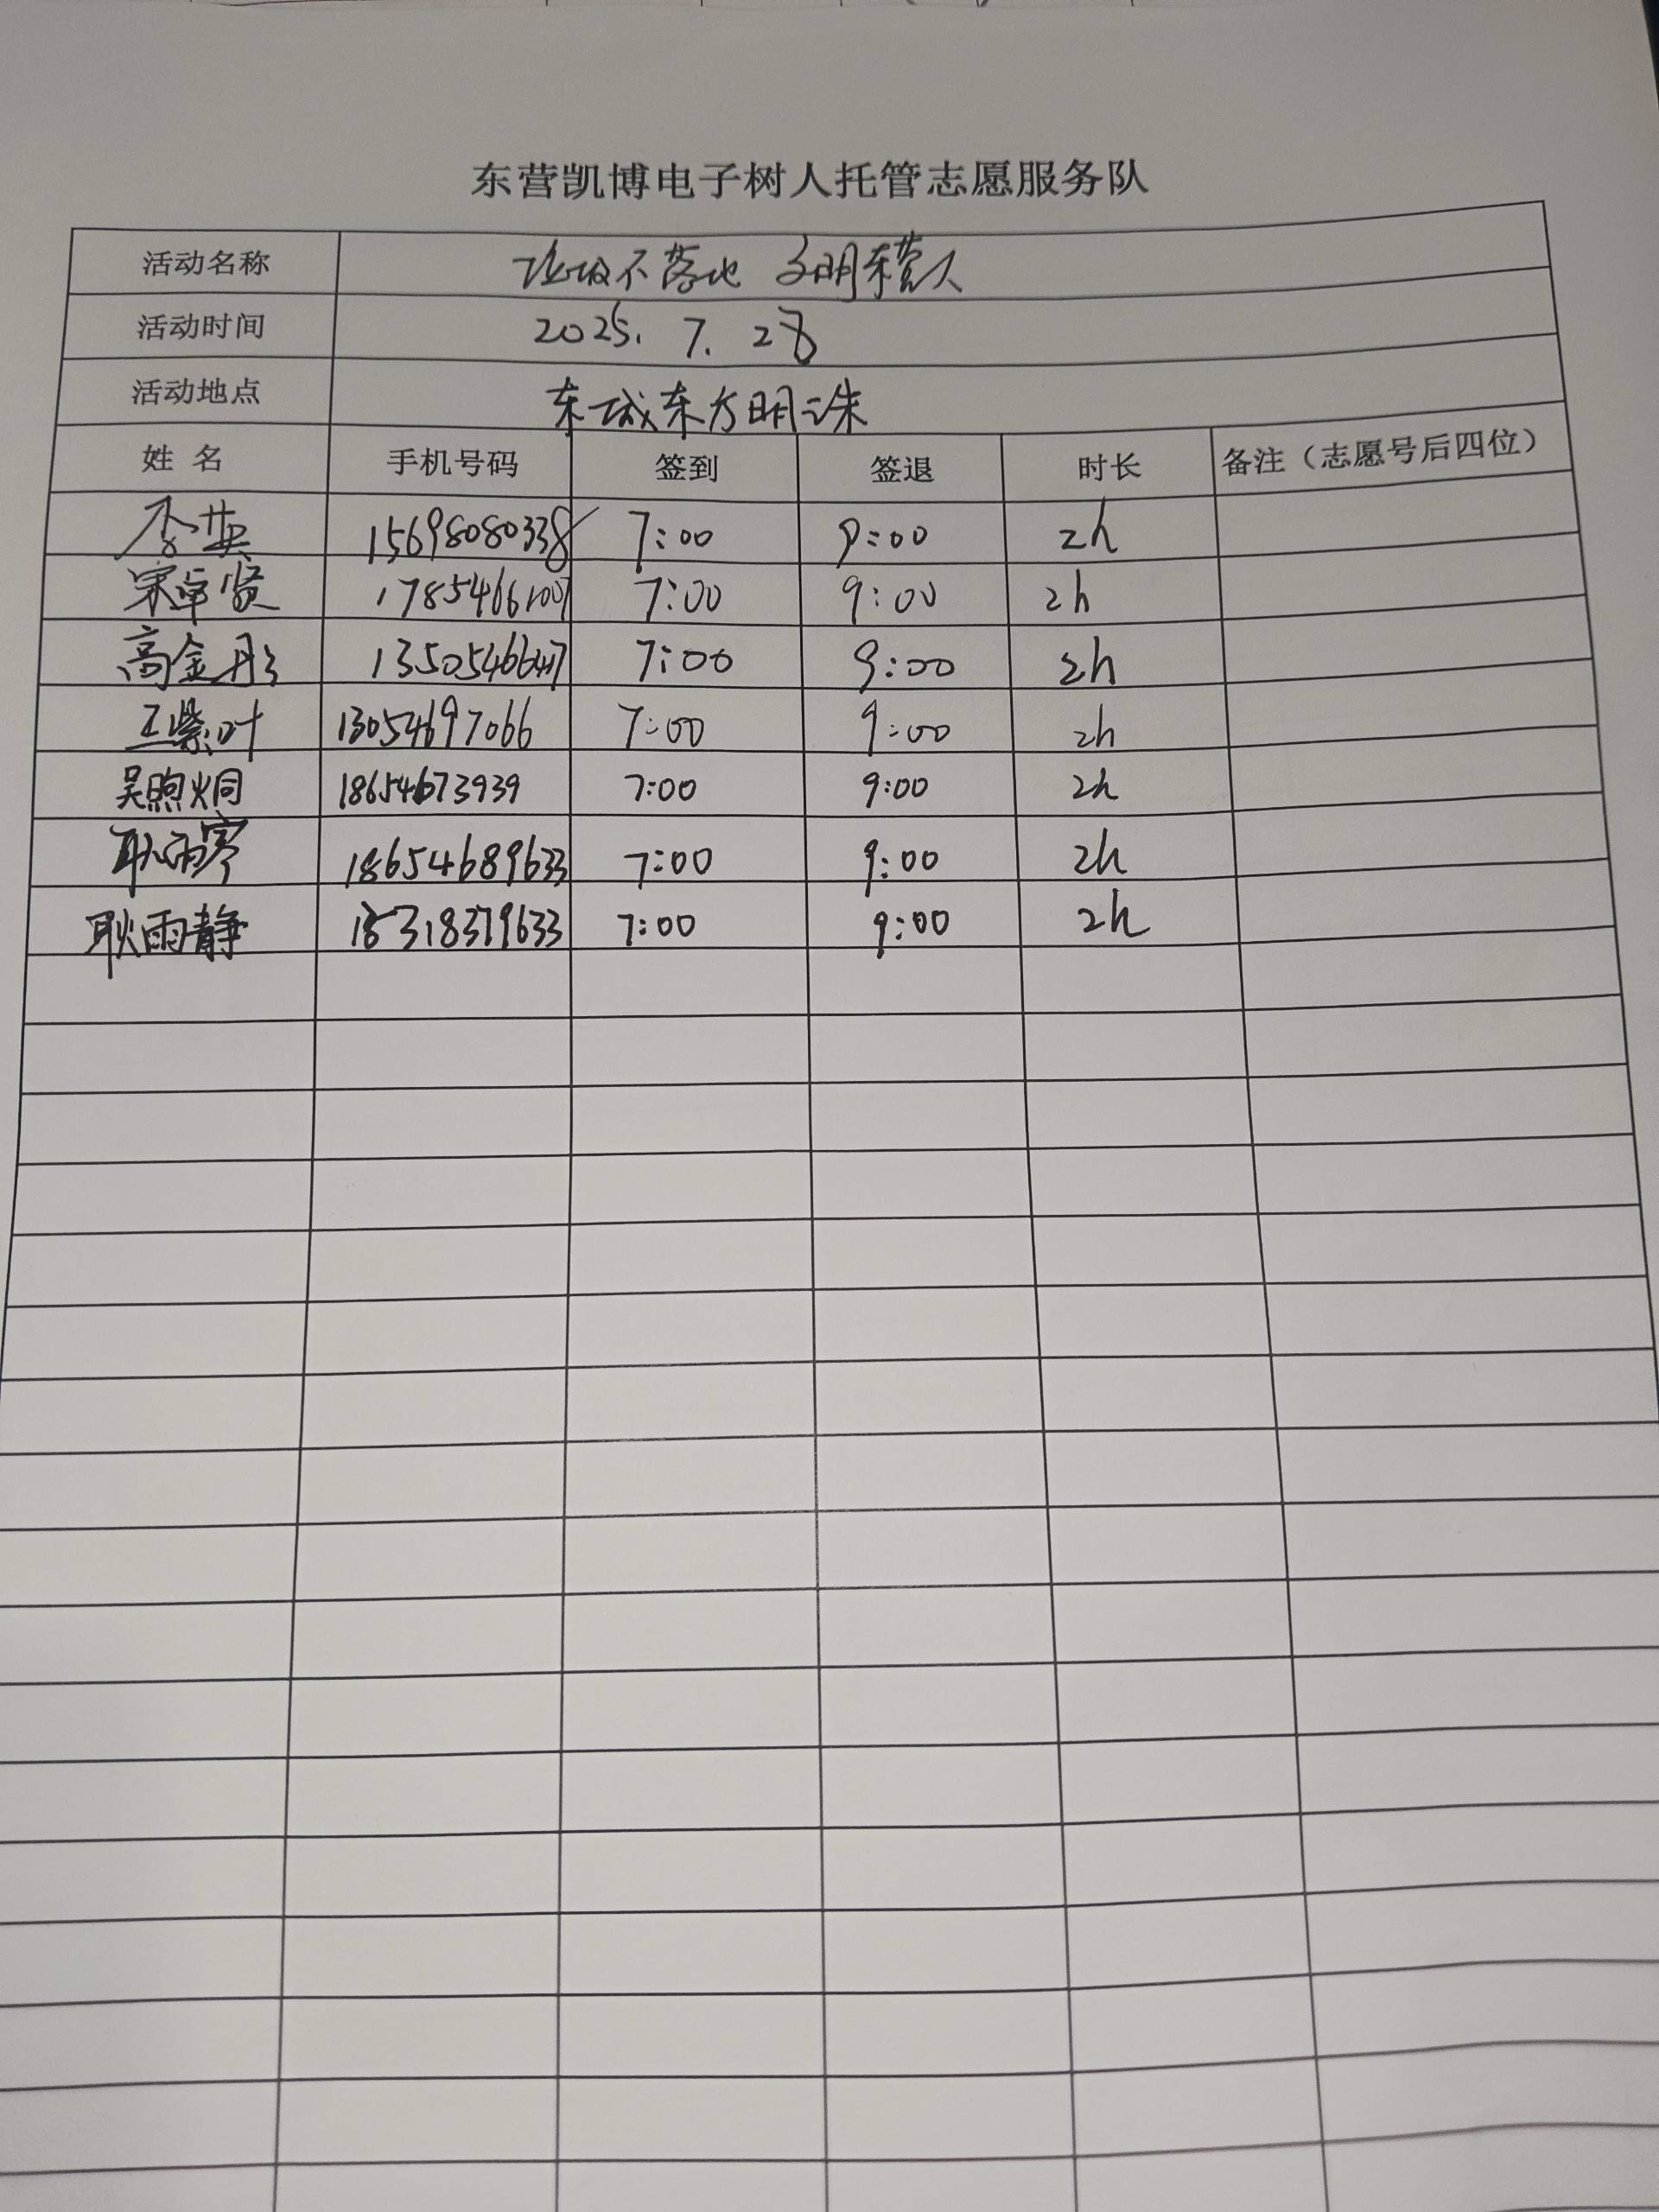 东营凯博电子树人托管志愿服务队
活动名称 垃圾不落地 文明东营人
活动时间 2025. 7. 28
活动地点 东城东方明珠
姓 名 手机号码 签到 签退 时长 备注（志愿号后四位）
李英 15698080338 7:00 9:00 2h
宋卓贤 7:00 9:00 2h
高金彤 13505466417 7:00 9:00 2h
王紫叶 13054697066 7:00 9:00 2h
吴煦炯 18654673939 7:00 9:00 2h
耿雨寒 18654689633 7:00 9:00 2h
耿雨静 18318379633 7:00 9:00 2h